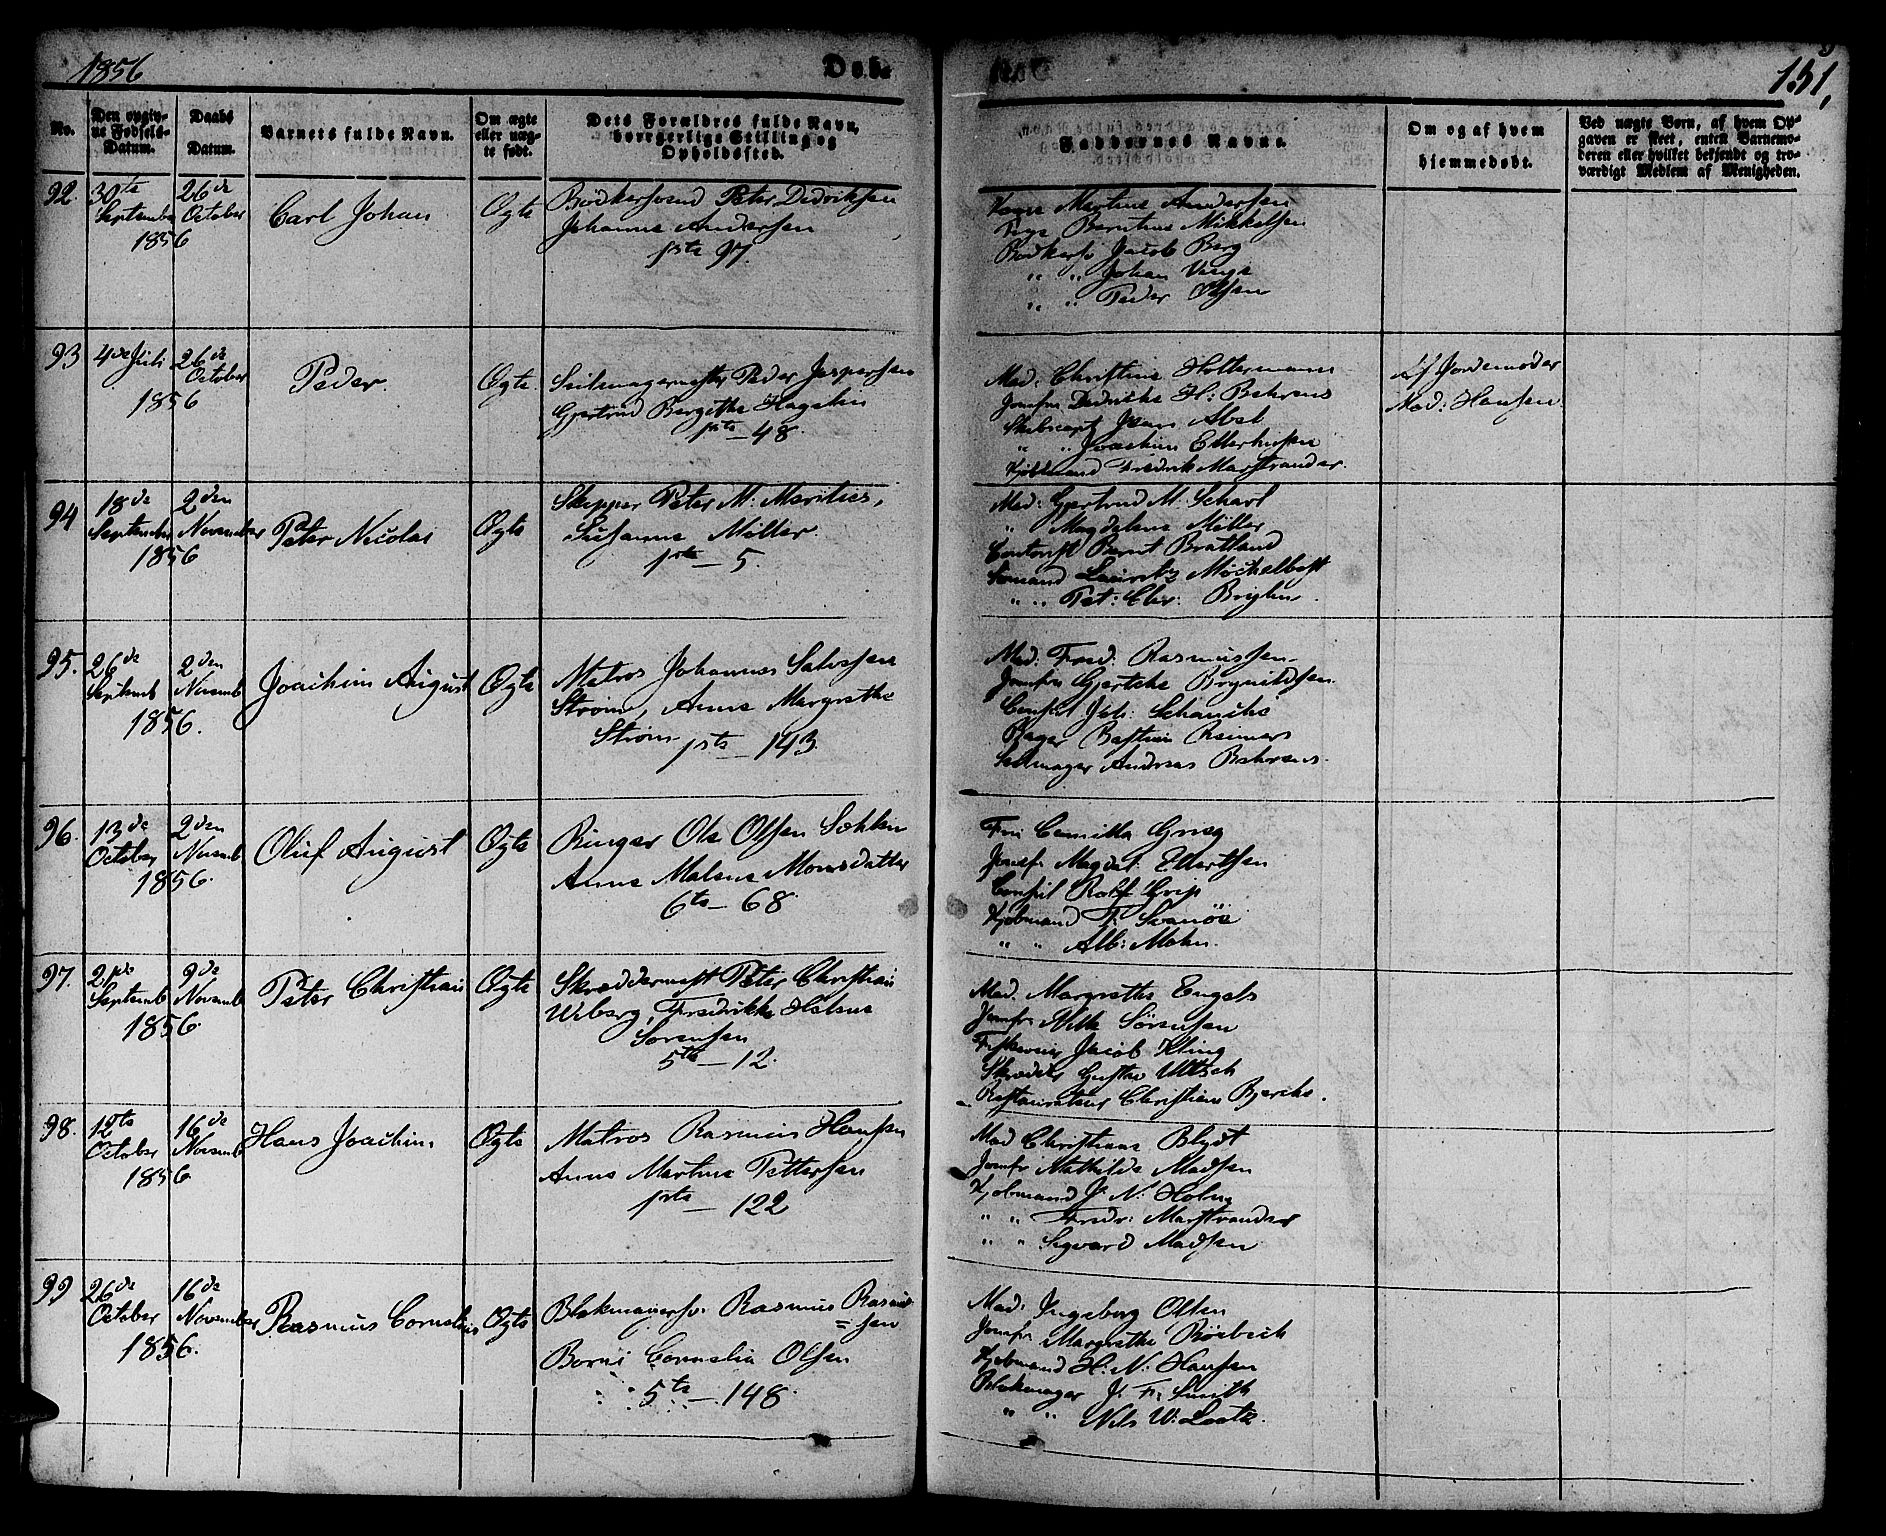 1856
Døb.
151,
No.
Den opgiv-
ne Fødsels-
Datum.
Daabs
Datum.
Barnets fulde Navn.
Om ægte
eller uæg-
te født.
Dets Forældres fulde Navn,
borgerlige Stilling og
Opholdssted.
Faddernes Navne.
Om og af hvem
hjemmedøbt.
Ved uægte Børn, af hvem Op-
gaven er skeet, enten Barnemo-
deren eller hvilket bekjendt og tro-
værdigt Medlem af Menigheden.
92.
30te
September
26de
October
1856
Carl Johan
Ægte
Bødkersvend Peter Dedriksen
Johanne Andersen
1ste 97.
Kone Martine Andersen
Pige Berntine Mikkelsen
Bødkersv Jacob Berg
" " Johan
" " Peder Olsen
93
4de Juli
26de
October
1856
Peder
Ægte.
Seilmagermester Peder Jespersen
Gjertrud Bergithe Hagelin
1ste — 48.
Mad: Christine Holtermann
Jomfru Dedricke H: Behrens
Skibscapt Jean Abel
" " Joachim Ellerhusen
Kjøbmand Fredrik Marstrander.
Af Jordemoder
Mad: Hansen.
94
18de
September
2den
November
1856
Peter Nicolai
Ægte
Skipper Peter M. Marities,
Susanne Møller.
1ste — 5.
Mad: Gjertrud M. Scharf
" Magdalene Møller
Contorist Bernt Bratland
Sømand Lauritz Mockelbost
" " Pet: Chr.
95.
26de
Septemb
2den
Novemb
1856.
Joachim August
Ægte
Matros Johannes Salvesen
Strøm, Anne Margrethe
Strøm 1ste — 143.
Mad: Fred. Rasmussen
Jomfru Gjertche Brynildsen.
Consul Joh: Schanche
Bager Bastian Reimers
Seilmager Andreas Behrens.
96.
13de
October
2den
Novemb
1856.
Oluf August
Ægte
Ringer Ole Olsen Sekken
Anne Malene Monsdatter
6te — 68.
Frü Camilla Grieg
Jomfr Magdal. Ellertsen
Consul Rolf Grip
Kjøbmand F. Svanöe
" " Alb: Mohn.
97.
21de
Septemb
9de
Novemb
1856.
Peter Christian
Ægte
Skræddermest Peter Christian
Wiberg, Fredrikke Helene
Sørensen
5te — 12.
Mad. Margrethe Engels
Jomfr Milla Sörensen
Jacob Kling
Skrædder Gustav Ultsch
Restaurateur Christian Bjercke.
98.
12te
October
16de
Novemb
1856
Hans Joachim.
Ægte
Matros Rasmus Hansen
Anne Martine Pettersen
1ste — 122
Mad Christiane Blydt
Jomfr Mathilde Madsen
Kjøbmand J. N. Holm
" " Fredr: Marstrander
" " Sigvard Madsen
99
26de
October
16de
November
1856.
Rasmus Cornelius
Ægte
Blokmagersv: Rasmus Rasmus
= sen
Borni Cornelia Olsen
5te — 148.
Mad: Ingeborg Olsen
Jomfr Margrethe Röebech
Kjøbmand H. N. Hansen
Blokmager J. Fr. Smith
" " Nils W. Loetz.